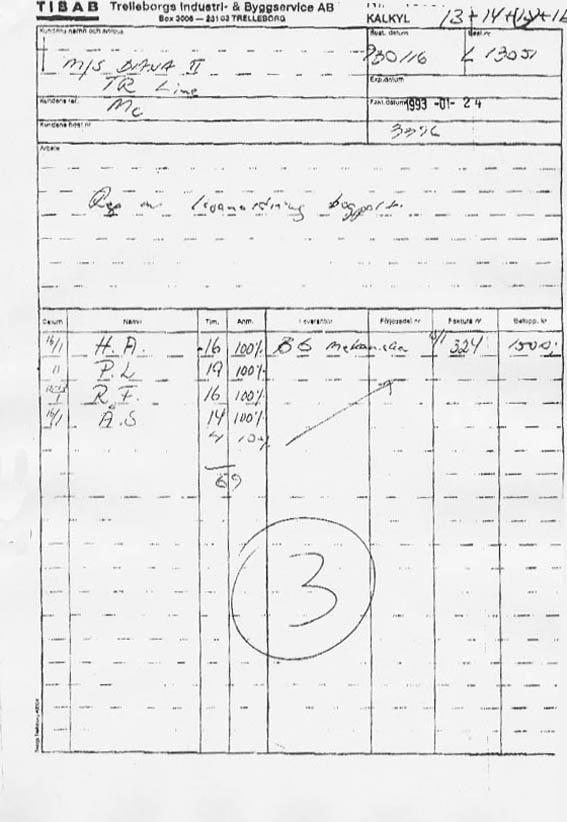 TIBAB Trelleborgs Industri- & Byggservice AB
Box 3006 – 231 03 TRELLEBORG
KALKYL 13+14+15+16
Kundens namn och adress
Best. datum
Best.nr
M/S DIANA II
930116
L 13051
TR Line
Exp.datum
Kundens ref.
Mc
Fakt.datum 1993 -01- 24
Kundens best.nr
3376
Arbete
Rep av bogport
Datum Namn Tim. Anm. Leverantör Följesedel nr Faktura nr Belopp. kr
16/1 H.A. 16 100% BS Mekaniska 324 1500:
11 P.L 19 100%
R.F. 16 100%
16/1 Å.S 14 100%
4
69
3